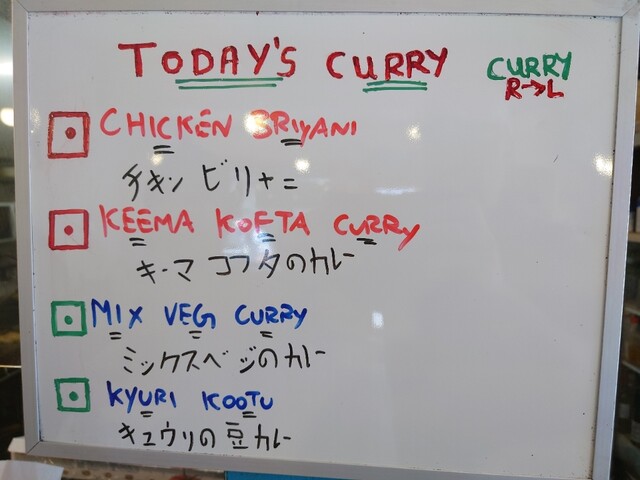 TODAY'S CURRY
CURRY
R→L
CHICKEN BRIYANI
チキン ビリヤニ
KEEMA KOFTA CURRY
キーマ コフタのカレー
MIX VEG CURRY
ミックスベジのカレー
KYURI KOOTU
キュウリの豆カレー